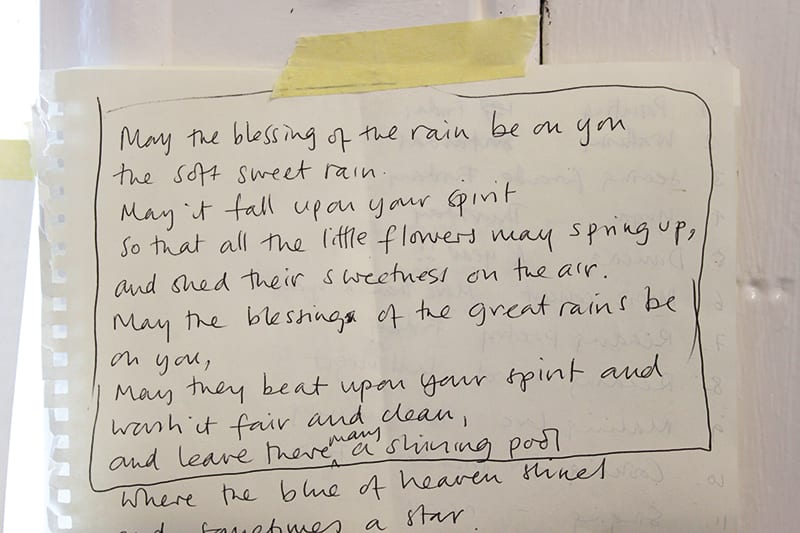 May the blessing of the rain be on you
the soft sweet rain.
May it fall upon your spirit
so that all the little flowers may spring up,
and shed their sweetness on the air.
May the blessings of the great rains be
on you,
May they beat upon your spirit and
wash it fair and clean,
and leave there many a shining pool
where the blue of heaven shines
and sometimes a star.